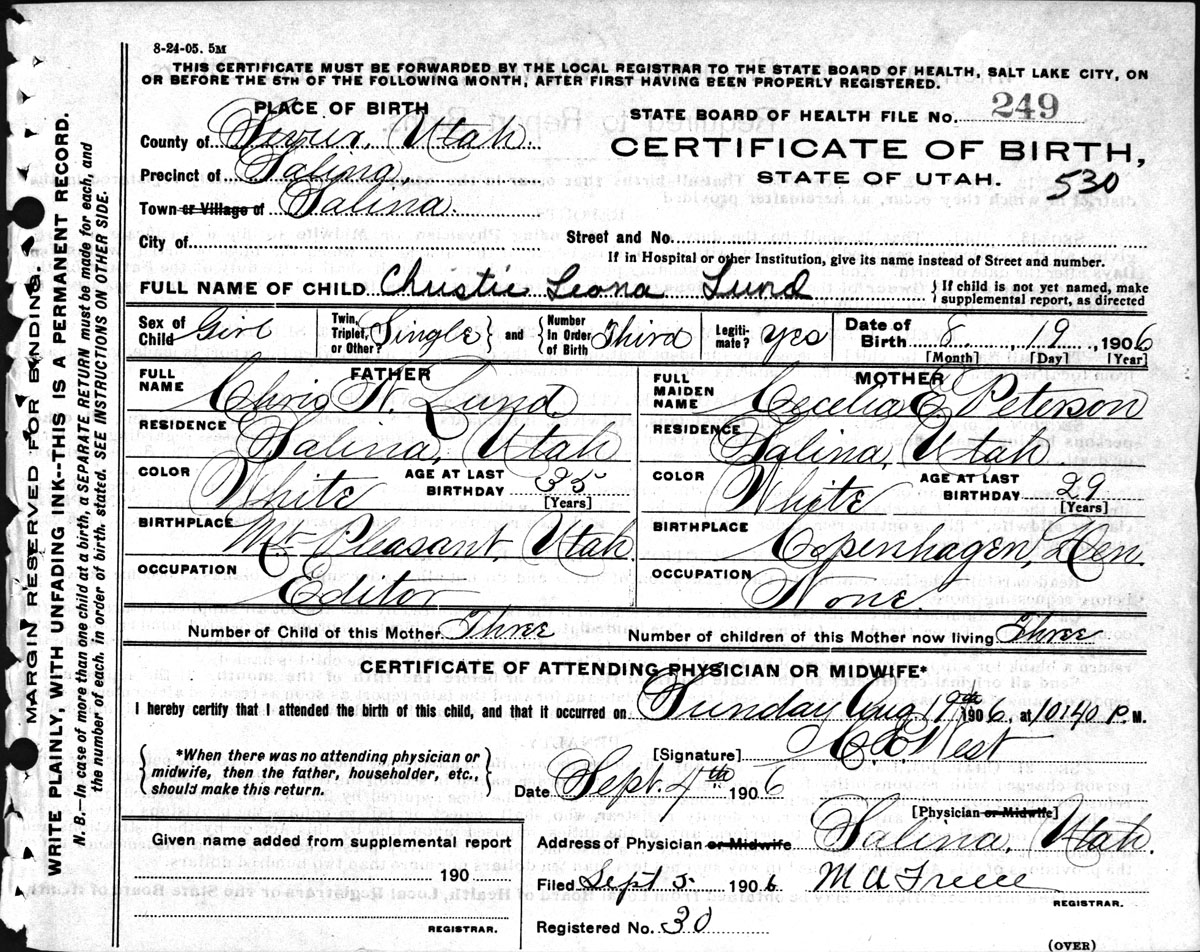 8-24-05. 5M
THIS CERTIFICATE MUST BE FORWARDED BY THE LOCAL REGISTRAR TO THE STATE BOARD OF HEALTH, SALT LAKE CITY, ON
OR BEFORE THE 5TH OF THE FOLLOWING MONTH, AFTER FIRST HAVING BEEN PROPERLY REGISTERED.
PLACE OF BIRTH
STATE BOARD OF HEALTH FILE No. 249
County of Sevier, Utah.
CERTIFICATE OF BIRTH,
Precinct of Salina
STATE OF UTAH. 530
Town or Village of Salina.
City of Street and No.
If in Hospital or other Institution, give its name instead of Street and number.
FULL NAME OF CHILD Christie Leona Lund { If child is not yet named, make
supplemental report, as directed
Sex of Child Girl Twin, Triplet, or Other? Single } and { Number In Order of Birth Third Legiti-mate? yes Date of Birth 8, 19, 1906
[Month] [Day] [Year]
FATHER MOTHER
FULL NAME Chris N. Lund. FULL MAIDEN NAME Cecelia E Peterson
RESIDENCE Salina, Utah RESIDENCE Salina, Utah.
COLOR White AGE AT LAST BIRTHDAY 35 [Years] COLOR White AGE AT LAST BIRTHDAY 29 [Years]
BIRTHPLACE Mt Pleasant, Utah. BIRTHPLACE Copenhagen, Den.
OCCUPATION Editor OCCUPATION None.
Number of Child of this Mother Three Number of children of this Mother now living Three
CERTIFICATE OF ATTENDING PHYSICIAN OR MIDWIFE*
I hereby certify that I attended the birth of this child, and that it occurred on Sunday Aug 19th 1906, at 10:40 P.M.
*When there was no attending physician or
midwife, then the father, householder, etc.,
should make this return.
[Signature] West
Date Sept. 4th 1906
[Physician or Midwife]
Given name added from supplemental report
Address of Physician or Midwife Salina, Utah.
190
Filed Sept 5 1906 M A Freece
REGISTRAR.
Registered No. 30
REGISTRAR.
(OVER)
MARGIN RESERVED FOR BINDING.
WRITE PLAINLY, WITH UNFADING INK--THIS IS A PERMANENT RECORD.
N. B.—In case of more than one child at a birth, a SEPARATE RETURN must be made for each, and
the number of each, in order of birth, stated. SEE INSTRUCTIONS ON OTHER SIDE.